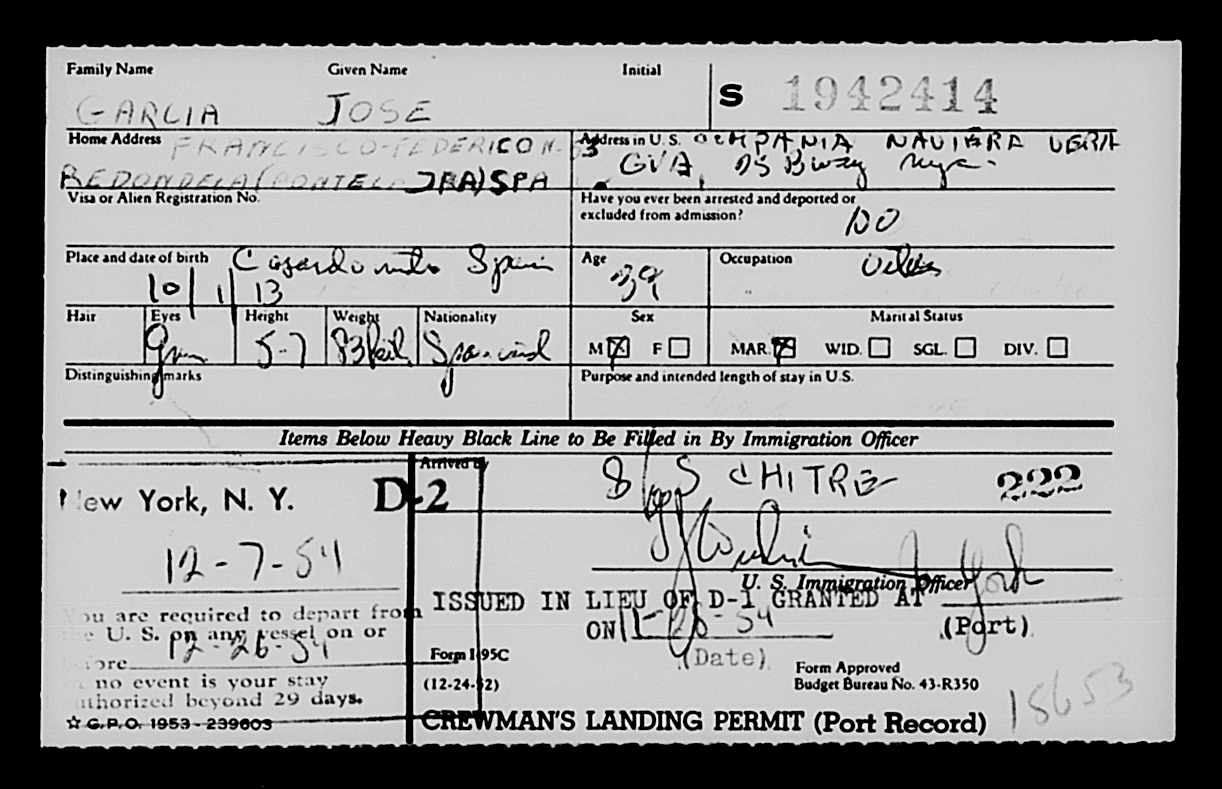 Family Name Given Name Initial
GARCIA JOSE S 1942414
Home Address FRANCISCO-FEDERICO N. 53
REDONDELA (PONTEVEDRA) SPA
Address in U.S. COMPANIA NAVIERA VERA
GUA, 25 Bway nyc.
Visa or Alien Registration No.
Have you ever been arrested and deported or
excluded from admission?
NO
Place and date of birth Spain
10/1/13
Age 39
Occupation
Hair Eyes Height Weight Nationality
Grn 5-7 83 kil
Sex
M F
Marital Status
MAR. WID. SGL. DIV.
Distinguishing marks
Purpose and intended length of stay in U.S.
Items Below Heavy Black Line to Be Filled in By Immigration Officer
New York, N. Y. D-2
12-7-54
You are required to depart from
the U. S. on any vessel on or
before 12-26-54
In no event is your stay
authorized beyond 29 days.
☆ G.P.O. 1953-239603
Arrived by S/S CHITRE 222
U. S. Immigration Officer
ISSUED IN LIEU OF D-1 GRANTED AT N York
(Port)
ON 11-28-54
(Date)
Form I-95C
(12-24-52)
Form Approved
Budget Bureau No. 43-R350
CREWMAN'S LANDING PERMIT (Port Record)
15653